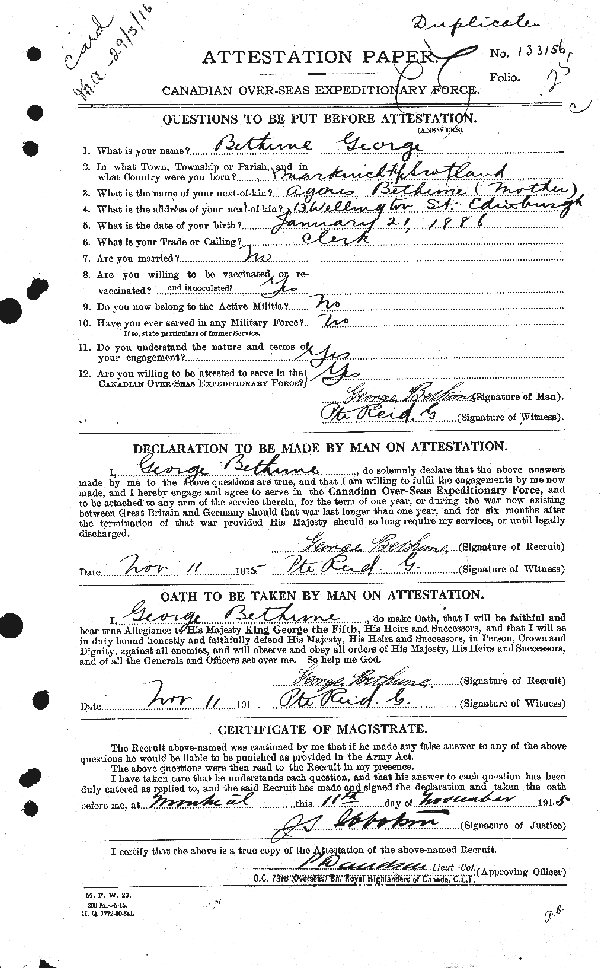 Duplicate
Card
M.A. 29/3/16
ATTESTATION PAPER.
No. 133156
Folio.
CANADIAN OVER-SEAS EXPEDITIONARY FORCE.
QUESTIONS TO BE PUT BEFORE ATTESTATION.
(ANSWERS)
1. What is your name? Bethune George
2. In what Town, Township or Parish, and in
what Country were you born? Scotland
3. What is the name of your next-of-kin? Agnes Bethune (Mother)
4. What is the address of your next-of-kin? Wellington St. Edinburgh
5. What is the date of your birth? January 21, 1886
6. What is your Trade or Calling? Clerk
7. Are you married? No
8. Are you willing to be vaccinated or re-
vaccinated? and inoculated? Yes
9. Do you now belong to the Active Militia? No
10. Have you ever served in any Military Force? No
If so, state particulars of former Service.
11. Do you understand the nature and terms of
your engagement? Yes
12. Are you willing to be attested to serve in the
CANADIAN OVER-SEAS EXPEDITIONARY FORCE? Yes
George Bethune (Signature of Man).
Pte Reid G (Signature of Witness).
DECLARATION TO BE MADE BY MAN ON ATTESTATION.
I, George Bethune, do solemnly declare that the above answers
made by me to the above questions are true, and that I am willing to fulfil the engagements by me now
made, and I hereby engage and agree to serve in the Canadian Over-Seas Expeditionary Force, and
to be attached to any arm of the service therein, for the term of one year, or during the war now existing
between Great Britain and Germany should that war last longer than one year, and for six months after
the termination of that war provided His Majesty should so long require my services, or until legally
discharged.
George Bethune (Signature of Recruit)
Date Nov 11 1915 Pte Reid G. (Signature of Witness)
OATH TO BE TAKEN BY MAN ON ATTESTATION.
I, George Bethune, do make Oath, that I will be faithful and
bear true Allegiance to His Majesty King George the Fifth, His Heirs and Successors, and that I will as
in duty bound honestly and faithfully defend His Majesty, His Heirs and Successors, in Person, Crown and
Dignity, against all enemies, and will observe and obey all orders of His Majesty, His Heirs and Successors,
and of all the Generals and Officers set over me. So help me God.
George Bethune (Signature of Recruit)
Date Nov 11 191 Pte Reid G. (Signature of Witness)
CERTIFICATE OF MAGISTRATE.
The Recruit above-named was cautioned by me that if he made any false answer to any of the above
questions he would be liable to be punished as provided in the Army Act.
The above questions were then read to the Recruit in my presence.
I have taken care that he understands each question, and that his answer to each question has been
duly entered as replied to, and the said Recruit has made and signed the declaration and taken the oath
before me, at Montreal this 11th day of November 1915
(Signature of Justice)
I certify that the above is a true copy of the Attestation of the above-named Recruit.
Lieut Col. (Approving Officer)
O.C. 73rd Overseas Bn. Royal Highlanders of Canada, C.E.F.
M. F. W. 23.